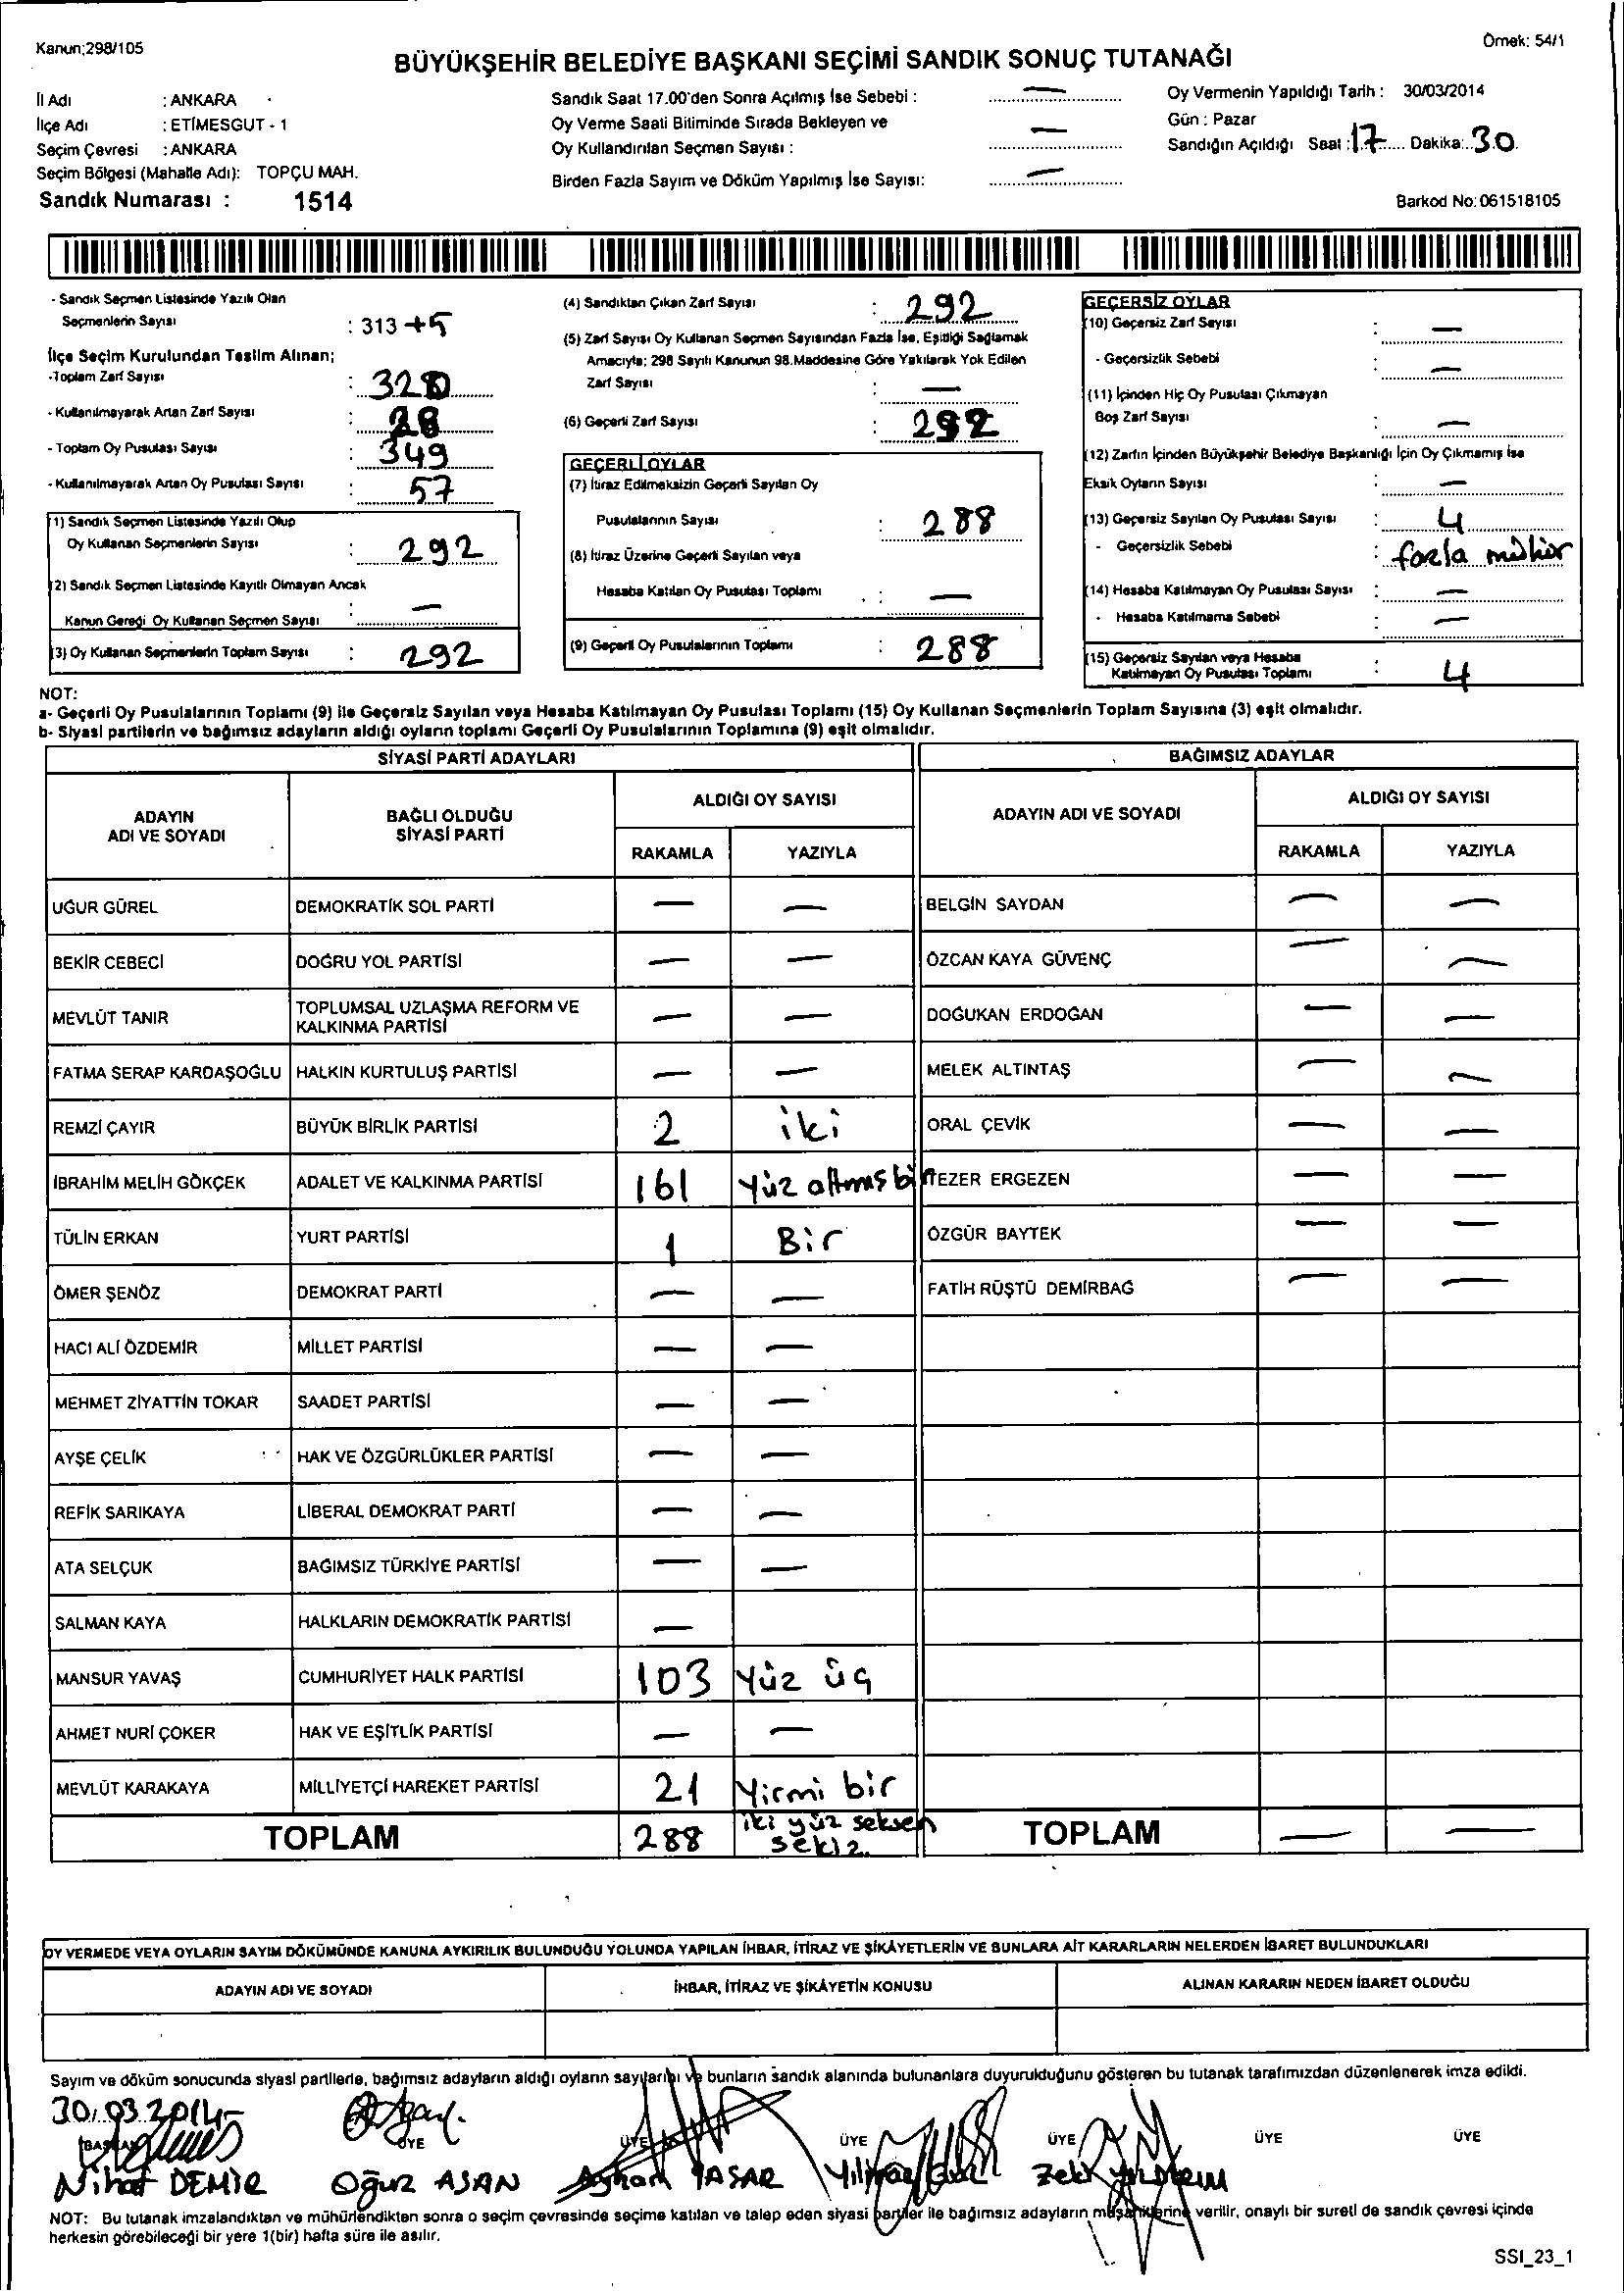 Kanun;298/105
Örnek: 54/1
BÜYÜKŞEHİR BELEDİYE BAŞKANI SEÇİMİ SANDIK SONUÇ TUTANAĞI
İl Adı : ANKARA
İlçe Adı : ETİMESGUT - 1
Seçim Çevresi : ANKARA
Seçim Bölgesi (Mahalle Adı): TOPÇU MAH.
Sandık Numarası : 1514
Sandık Saat 17.00'den Sonra Açılmış İse Sebebi : —
Oy Verme Saati Bitiminde Sırada Bekleyen ve
Oy Kullandırılan Seçmen Sayısı : —
Birden Fazla Sayım ve Döküm Yapılmış İse Sayısı: —
Oy Vermenin Yapıldığı Tarih : 30/03/2014
Gün : Pazar
Sandığın Açıldığı Saat : 17 Dakika: 30
Barkod No: 061518105
- Sandık Seçmen Listesinde Yazılı Olan
Seçmenlerin Sayısı : 313 +5
İlçe Seçim Kurulundan Teslim Alınan;
-Toplam Zarf Sayısı : 320
- Kullanılmayarak Artan Zarf Sayısı : 28
- Toplam Oy Pusulası Sayısı : 349
- Kullanılmayarak Artan Oy Pusulası Sayısı : 57
(1) Sandık Seçmen Listesinde Yazılı Olup
Oy Kullanan Seçmenlerin Sayısı : 292
(2) Sandık Seçmen Listesinde Kayıtlı Olmayan Ancak
Kanun Gereği Oy Kullanan Seçmen Sayısı : —
(3) Oy Kullanan Seçmenlerin Toplam Sayısı : 292
(4) Sandıktan Çıkan Zarf Sayısı : 292
(5) Zarf Sayısı Oy Kullanan Seçmen Sayısından Fazla İse, Eşitliği Sağlamak
Amacıyla; 298 Sayılı Kanunun 98.Maddesine Göre Yakılarak Yok Edilen
Zarf Sayısı : —
(6) Geçerli Zarf Sayısı : 292
GEÇERLİ OYLAR
(7) İtiraz Edilmeksizin Geçerli Sayılan Oy
Pusulalarının Sayısı : 288
(8) İtiraz Üzerine Geçerli Sayılan veya
Hesaba Katılan Oy Pusulası Toplamı : —
(9) Geçerli Oy Pusulalarının Toplamı : 288
GEÇERSİZ OYLAR
(10) Geçersiz Zarf Sayısı : —
- Geçersizlik Sebebi : —
(11) İçinden Hiç Oy Pusulası Çıkmayan
Boş Zarf Sayısı : —
(12) Zarfın İçinden Büyükşehir Belediye Başkanlığı İçin Oy Çıkmamış İse
Eksik Oyların Sayısı : —
(13) Geçersiz Sayılan Oy Pusulası Sayısı : 4
- Geçersizlik Sebebi : fazla mühür
(14) Hesaba Katılmayan Oy Pusulası Sayısı : —
- Hesaba Katılmama Sebebi : —
(15) Geçersiz Sayılan veya Hesaba
Katılmayan Oy Pusulası Toplamı : 4
NOT:
a- Geçerli Oy Pusulalarının Toplamı (9) ile Geçersiz Sayılan veya Hesaba Katılmayan Oy Pusulası Toplamı (15) Oy Kullanan Seçmenlerin Toplam Sayısına (3) eşit olmalıdır.
b- Siyasi partilerin ve bağımsız adayların aldığı oyların toplamı Geçerli Oy Pusulalarının Toplamına (9) eşit olmalıdır.
SİYASİ PARTİ ADAYLARI
ADAYIN ADI VE SOYADI BAĞLI OLDUĞU SİYASİ PARTİ ALDIĞI OY SAYISI
RAKAMLA YAZIYLA
UĞUR GÜREL DEMOKRATİK SOL PARTİ — —
BEKİR CEBECİ DOĞRU YOL PARTİSİ — —
MEVLÜT TANIR TOPLUMSAL UZLAŞMA REFORM VE KALKINMA PARTİSİ — —
FATMA SERAP KARDAŞOĞLU HALKIN KURTULUŞ PARTİSİ — —
REMZİ ÇAYIR BÜYÜK BİRLİK PARTİSİ 2 iki
İBRAHİM MELİH GÖKÇEK ADALET VE KALKINMA PARTİSİ 161 Yüz altmış bir
TÜLİN ERKAN YURT PARTİSİ 1 Bir
ÖMER ŞENÖZ DEMOKRAT PARTİ — —
HACI ALİ ÖZDEMİR MİLLET PARTİSİ — —
MEHMET ZİYATTİN TOKAR SAADET PARTİSİ — —
AYŞE ÇELİK HAK VE ÖZGÜRLÜKLER PARTİSİ — —
REFİK SARIKAYA LİBERAL DEMOKRAT PARTİ — —
ATA SELÇUK BAĞIMSIZ TÜRKİYE PARTİSİ — —
SALMAN KAYA HALKLARIN DEMOKRATİK PARTİSİ —
MANSUR YAVAŞ CUMHURİYET HALK PARTİSİ 103 Yüz üç
AHMET NURİ ÇOKER HAK VE EŞİTLİK PARTİSİ — —
MEVLÜT KARAKAYA MİLLİYETÇİ HAREKET PARTİSİ 21 Yirmi bir
TOPLAM 288 iki yüz seksen sekiz
BAĞIMSIZ ADAYLAR
ADAYIN ADI VE SOYADI ALDIĞI OY SAYISI
RAKAMLA YAZIYLA
BELGİN SAYDAN — —
ÖZCAN KAYA GÜVENÇ — —
DOĞUKAN ERDOĞAN — —
MELEK ALTINTAŞ — —
ORAL ÇEVİK — —
TEZER ERGEZEN — —
ÖZGÜR BAYTEK — —
FATİH RÜŞTÜ DEMİRBAĞ — —
TOPLAM — —
OY VERMEDE VEYA OYLARIN SAYIM DÖKÜMÜNDE KANUNA AYKIRILIK BULUNDUĞU YOLUNDA YAPILAN İHBAR, İTİRAZ VE ŞİKÂYETLERİN VE BUNLARA AİT KARARLARIN NELERDEN İBARET BULUNDUKLARI
ADAYIN ADI VE SOYADI İHBAR, İTİRAZ VE ŞİKÂYETİN KONUSU ALINAN KARARIN NEDEN İBARET OLDUĞU
Sayım ve döküm sonucunda siyasi partilerle, bağımsız adayların aldığı oyların sayılarını ve bunların sandık alanında bulunanlara duyurulduğunu gösteren bu tutanak tarafımızdan düzenlenerek imza edildi.
30.03.2014
BAŞKAN ÜYE ÜYE ÜYE ÜYE ÜYE ÜYE
Nihat DEMİR Oğuz ASAN Ayhan YAŞAR Yılmaz Zeki YILDIRIM
NOT: Bu tutanak imzalandıktan ve mühürlendikten sonra o seçim çevresinde seçime katılan ve talep eden siyasi partiler ile bağımsız adayların müşahitlerine verilir, onaylı bir sureti de sandık çevresi içinde
herkesin görebileceği bir yere 1(bir) hafta süre ile asılır.
SSI_23_1